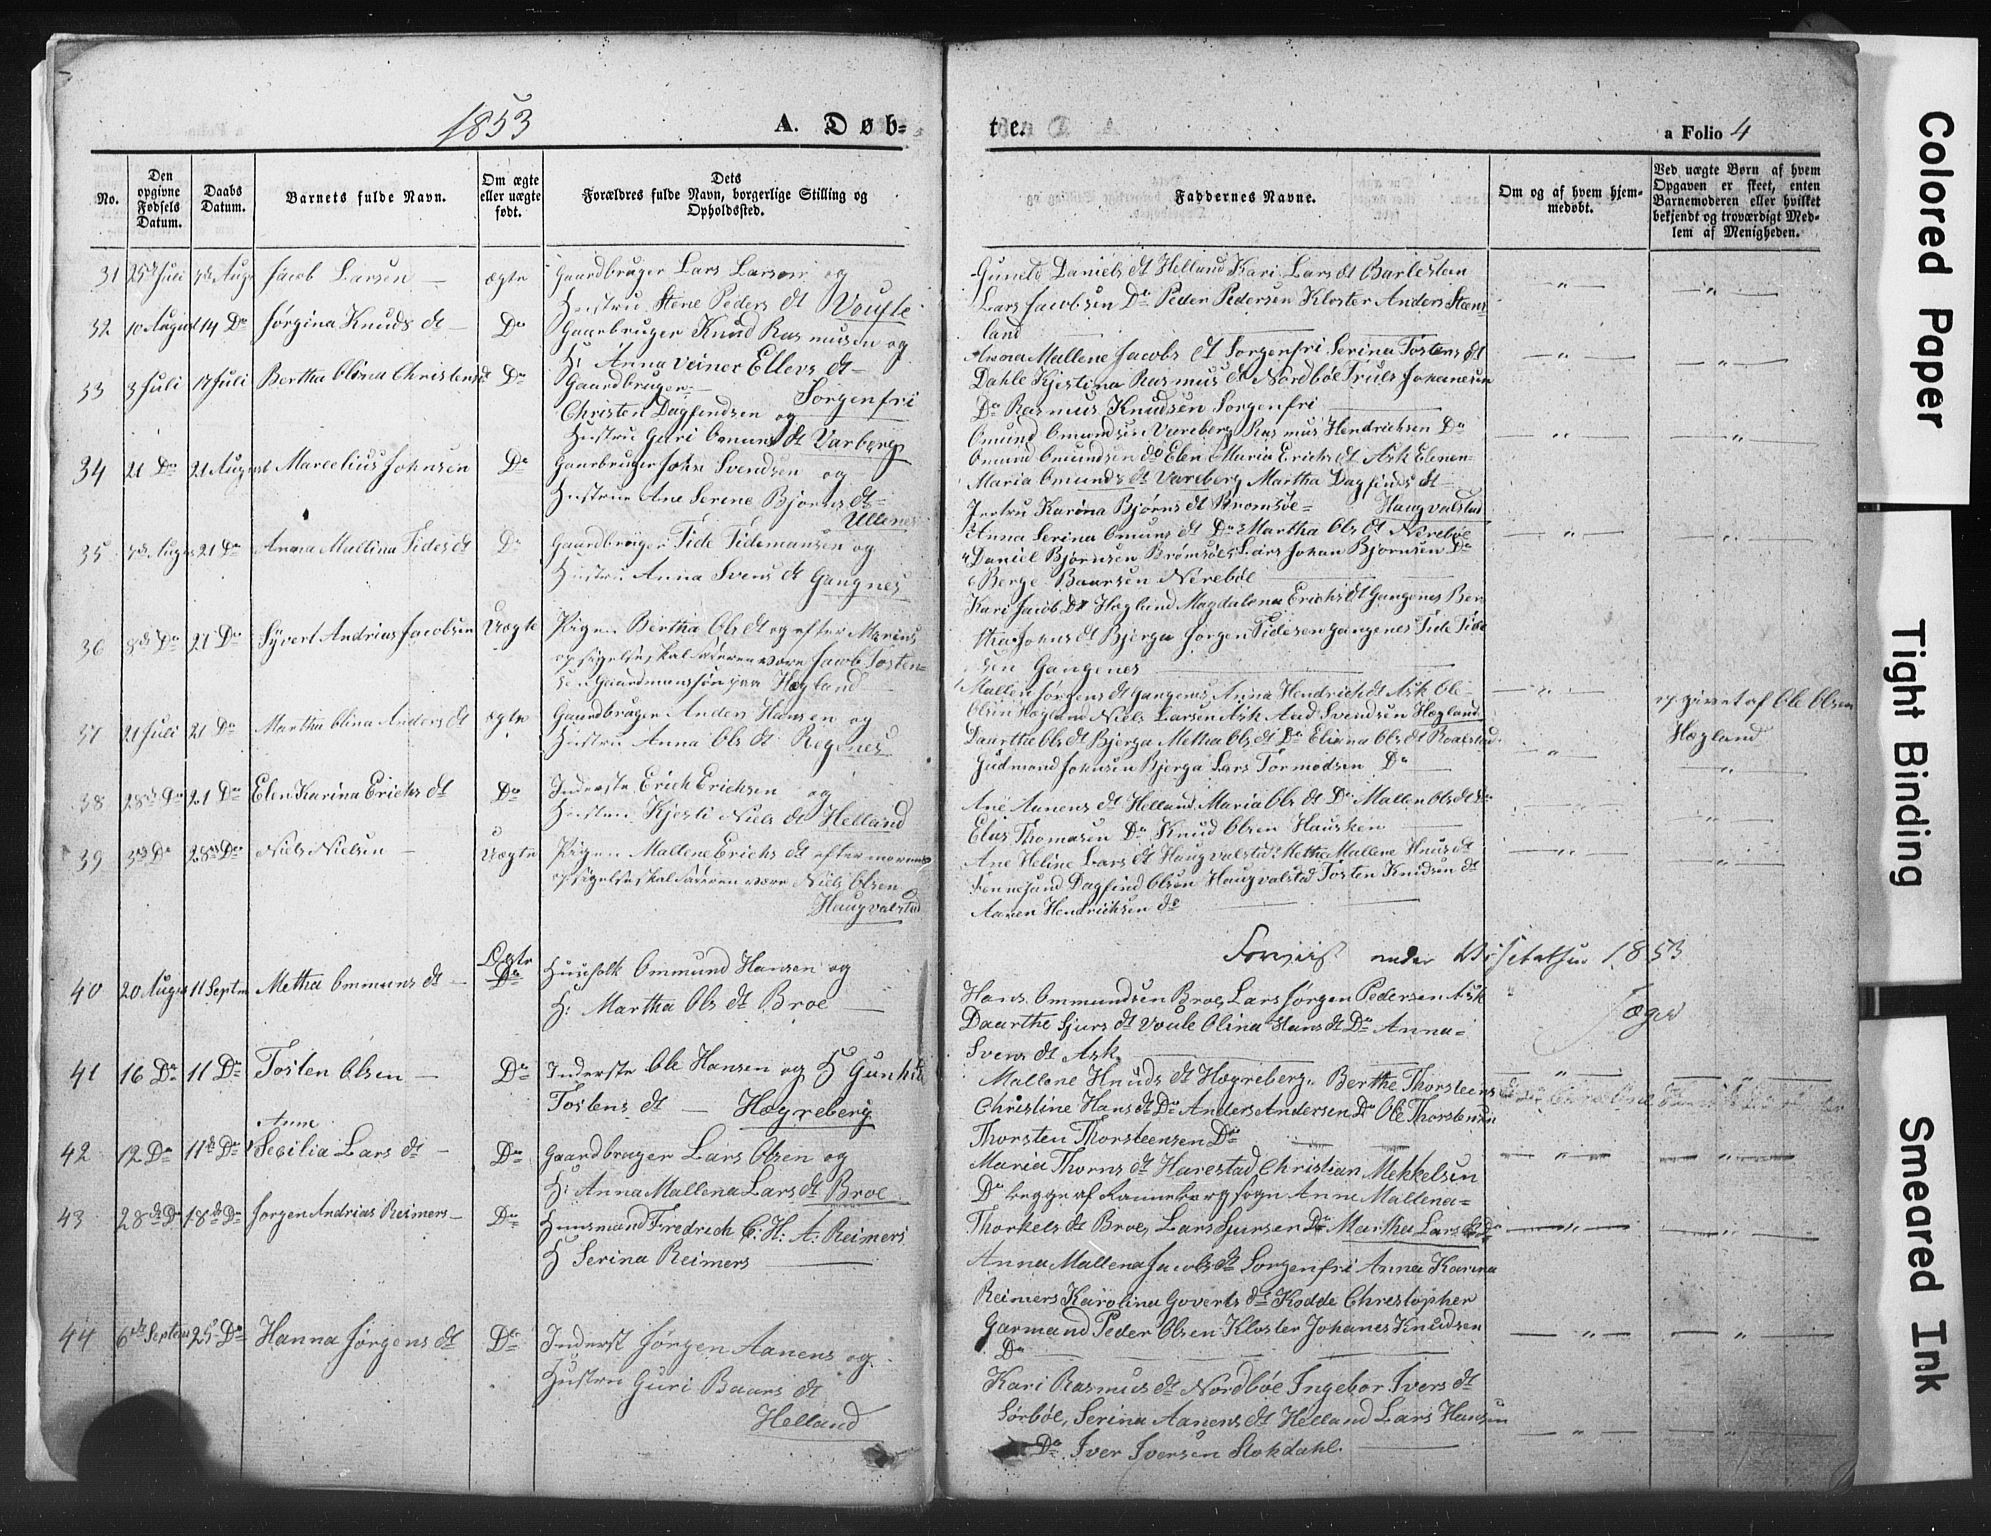 1853
A. Døb-
No.
Den opgivne Fødsels Datum.
Daabs Datum.
Barnets fulde Navn.
Om ægte eller uægte født.
Dets
Forældres fulde Navn, borgerlige Stilling og Opholdssted.
31 25de Juli 7de Aug Jacob Larsen — ægte Gaardbruger Lars Larsen og
Hustru Stene Peders dt Voufle
32 10 August 14 Do Jørgina Knuds dt — Do Gaarbruger Knud Rasmusen og
H: Anna Veiner Ellers dt
Sorgenfri
33 3 Juli 17 Juli Bertha Olena Christensd Do Gaardbruger
Christen Dagfindsen og
Hustru Guri Omuns dt Varberg
34 21 Do 21 August Marcelius Johnsen Do Gaarbruger John Svendsen og
Hustrue Ane Serene Bjorns dt
Ullenes
35 7de August 21 Do Anna Mallina Tides dt Do Gaardbruger Tide Tidemansen og
Hustru Anna Svens dt Gangnes
36 8de Do 21 Do Syvert Andrias Jacobsen Uægte Pigen Bertha Ols dt og efter Mœrins
opsigelse skal Faderen være Jacob Tosten-
sen Gaardmansøn paa Hægland
37 21 Juli 21 Do Martha Olina Anders dt ægte Gaardbruger Anders Hansen og
Hustru Anna Ols dt Regenes
38 28de Do 21 Do Elen Karina Erichs dt Do Inderste Erich Erichsen og
Hustru Kjesti Niels dt Helland
39 3de Do 28de Do Niels Nielsen — Uægte Pigen Mallene Erichs dt efter moren
opsigelse skal Faderen være Niels Olsen
Haugvalstad
40 20 Augus 11 Septm Metha Ommuns dt — Ægte Do Huusfolk Ommund Hansen og
H: Martha Ols dt Broe —
41 16 Do 11 Do Tosten Olsen — Do Inderste Ole Hansen og H Gunhild
Tostens dt — Hægreberg
42 12 Do 11te Do Anne Secilia Lars dt — Do Gaardbruger Lars Olsen og
H: Anna Mallena Lars dt Broe
43 28de Do 18de Do Jorgen Andrias Reimers — Do Husmand Fredrich C. H: A: Reimers
H Serina Reimers —
44 6te Septem 25 Do Hanna Jørgens dt Do Inderst Jørgen Aanens og
Hustru Guri Baars dt
Helland
te.
a Folio 4
Faddernes Navne.
Om og af hvem hjem-
medøbt.
Ved uægte Børn af hvem
Opgaven er skeet, enten
Barnemoderen eller hvilket
bekjendt og troværdigt Med-
lem af Menigheden.
Guneld Daniels dt Helland Kari Lars dt Barlestein
Lars Jacobsen Do Peder Pedersen Kloster Anders Stens
land
Anna Mallene Jacobs dt Sorgenfri Serina Tostens dt
Dahle Kjestina Rasmus dt Nordbøe Truls Johanesen
Do Rasmus Knudsen Sorgenfri
Omund Omundsen Vareberg Rasmus Hendrichsen Do
Omund Omundsen do Elen Maria Erichs dt Ask Elenen
Maria Omunds dt Vareberg Martha Dagfinds dt
Haugvalstad
Jertru Karina Bjørns dt Bromsøe
Anna Serina Omuns dt Do Martha Ols dt Nerebøe
Daniel Bjørnsen Brømsøe Lars Johan Bjornsen Do
Berge Baarsen Nerebøe
Kari Jacob Dt Hægland Magdalena Erichs dt Gangenes Ber
tha Johns dt Bjerga Jorgen Tidesen Gangenes Tide Tide
sen Gangenes
Mallen Jørgens dt Gangenes Anna Hendrich dt Ask Ole
Olsen Hægland Niels Larsen Ask And Svendsen Hægland
Daarthe Ols dt Bjerga Metha Ols dt Do Eliana Ols dt Roalstad
Gudmond Johnsen Bjerga Lars Tormodsen Do
Ane Aanens dt Helland Maria Ols dt Do Mallen Ols dt Do
Elias Thomasen Do Knud Olsen Hausken
Ane Heline Lars dt Haugvalstad Metha Mallene Knus dt
Fennesund Dagfind Olsen Haugvalstad Tosten Knudsen dt
Aanen Hendrichsen do
opgivet af Ole Olsen
Hægland
Forviist under Visitatsen 1853
Hans Ommundsen Broe, Lars Jørgen Pedersen Ask
Daarthe Sjurs dt Voule Olina Hans dt Do Anna
Svens dt Ask
Mallene Knuds dt Hægreberg Berthe Thorsteens
Christine Hans dt Do Anders Andersen Do Ole Thorstensen
Thorsten Thorsteensen Do
Maria Thorns dt Harestad Christian Mekkelsen
Do begge af Ranneberg sogn Anne Mallena
Thorkels dt Broe, Lars Sjursen Do Martha Lars dt do
Anna Mallena Jacobs dt Sorgenfri Anna Karina
Reimers Karolina Goverts dt Kodde Chrestopher
Garmand Peder Olsen Kloster Johanes Knudsen
Do
Kari Rasmus dt Nordbøe Ingebor Ivers dt
Sørbøe, Serina Aanens dt Helland Lars Hansen
Do Iver Iversen Stokdahl.
Colored Paper
Tight Binding
Smeared Ink